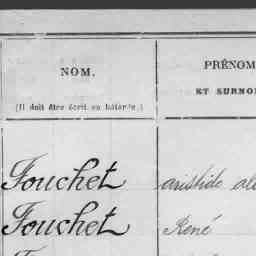 NOM. PRÉNOM
(Il doit être écrit en bâtarde.) ET SURNO
Fouchet aristide al
Fouchet René